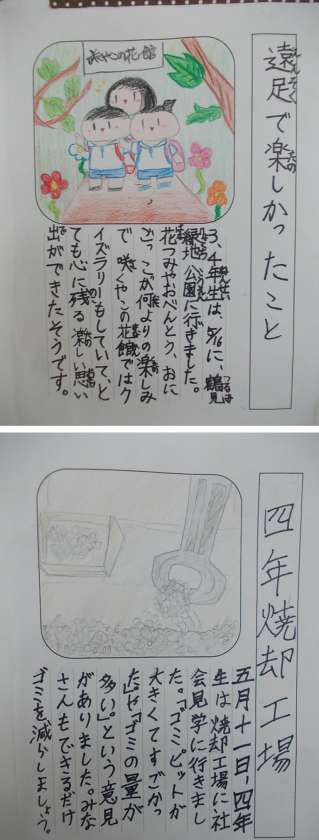 遠足で楽しかったこと
咲やこの花館
3、4年生は、5/6に、鶴見
緑地公園に行きました。
花つみやおべんとう、おに
ごっこが何よりの楽しみ
で咲くやこの花館ではク
イズラリーもしていて、と
ても心に残る楽しい思い
出ができたそうです。
四年焼却工場
五月十一日、四年
生は焼却工場に社
会見学に行きまし
た。「ゴミピットが
大きくてすごかっ
た」や「ゴミの量が
多い」という意見
がありました。みな
さんもできるだけ
ゴミを減らしましょう。